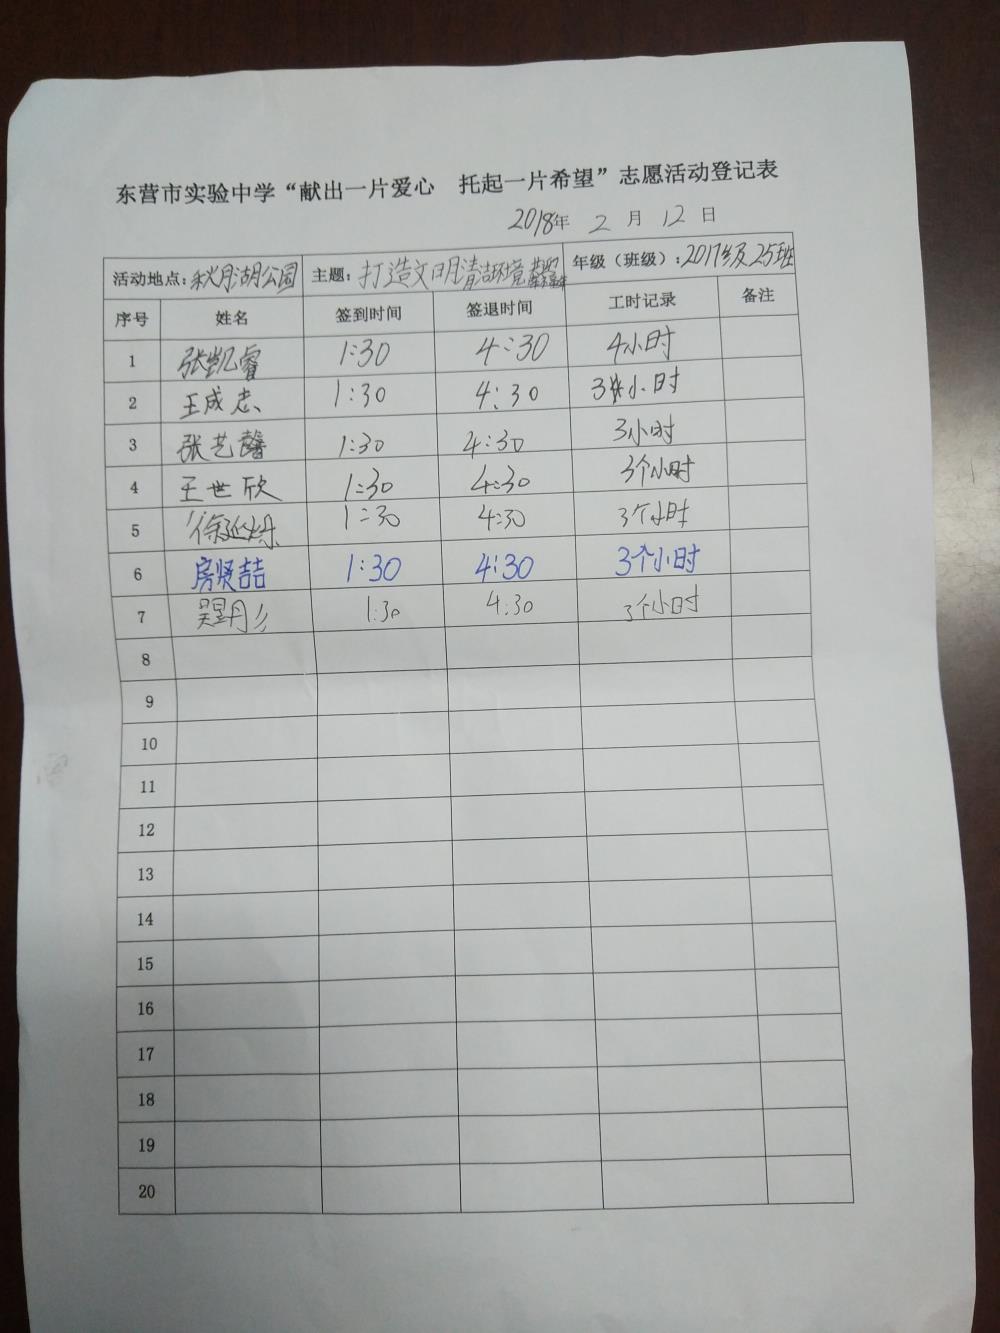 东营市实验中学“献出一片爱心 托起一片希望”志愿活动登记表
2018年 2 月 12 日
活动地点:秋月湖公园 主题:打造文明清洁环境 年级（班级）:2017级25班
序号 姓名 签到时间 签退时间 工时记录 备注
1 张凯睿 1:30 4:30 4小时
2 王成志 1:30 4:30 3小时
3 张艺馨 1:30 4:30 3小时
4 王世欣 1:30 4:30 3个小时
5 徐延烁 1:30 4:30 3个小时
6 房贤喆 1:30 4:30 3个小时
7 1:30 4:30 3个小时
8
9
10
11
12
13
14
15
16
17
18
19
20